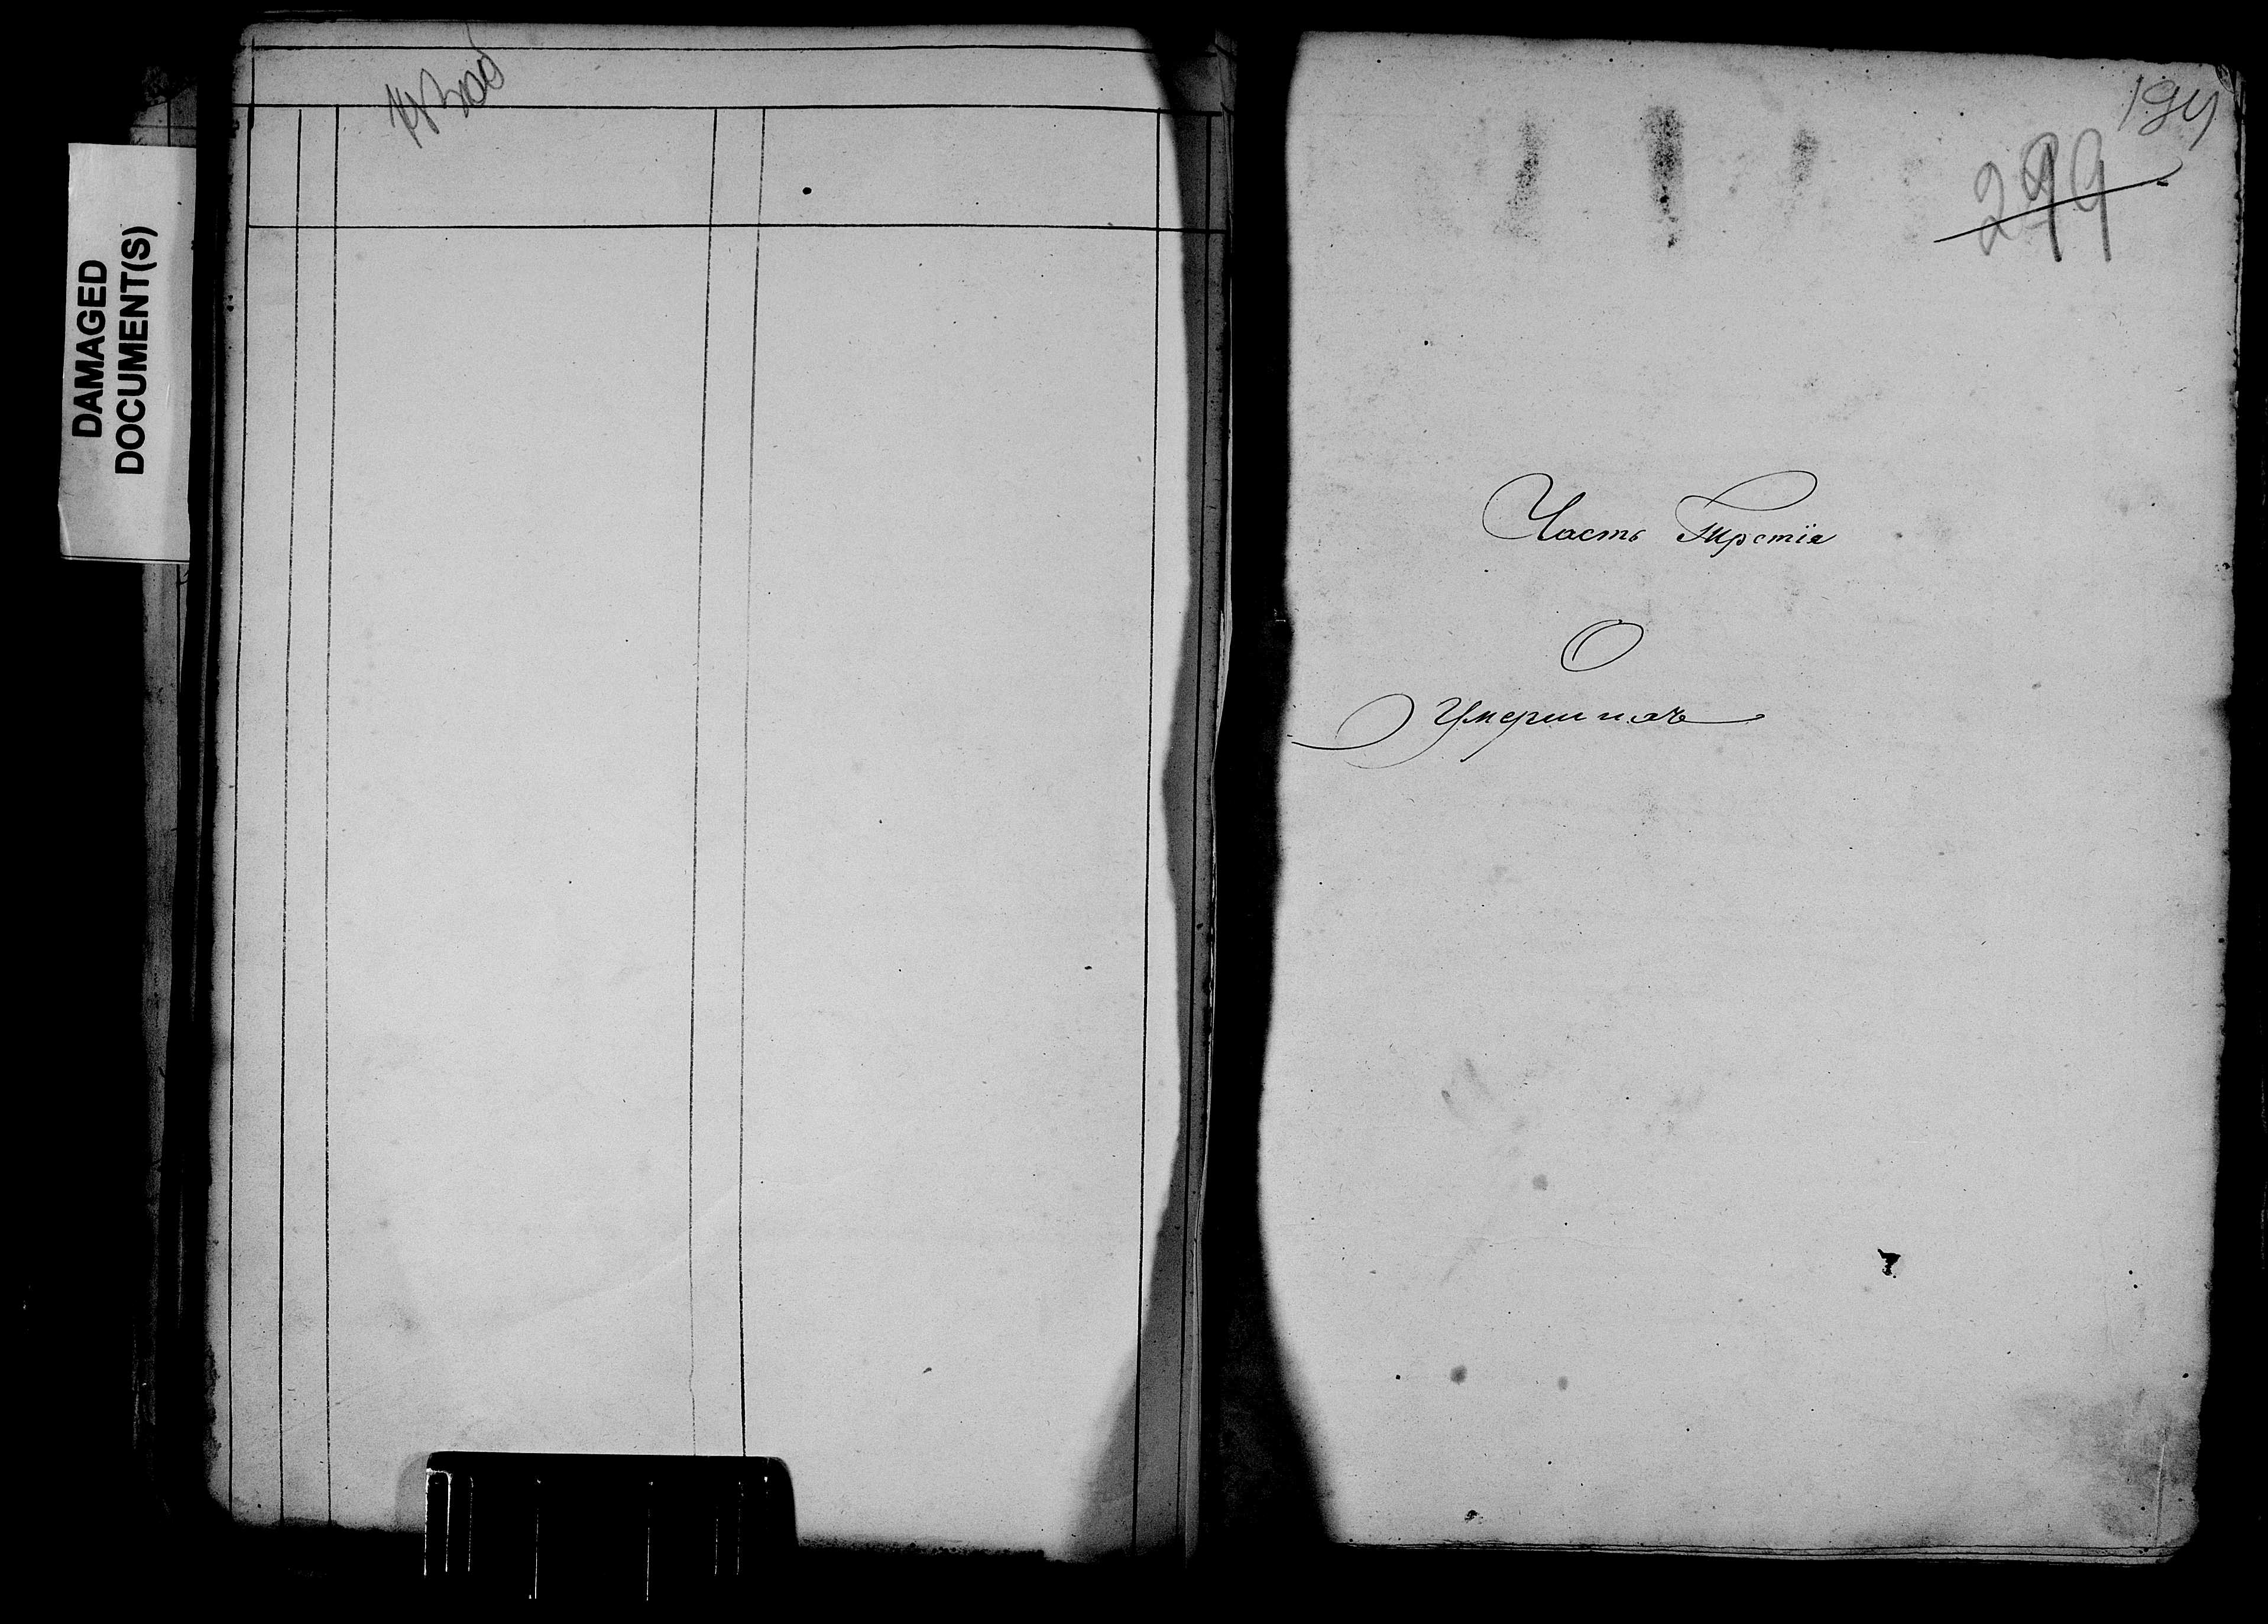 DAMAGED
DOCUMENT(S)
299
Часть Третія
О
Умершихъ